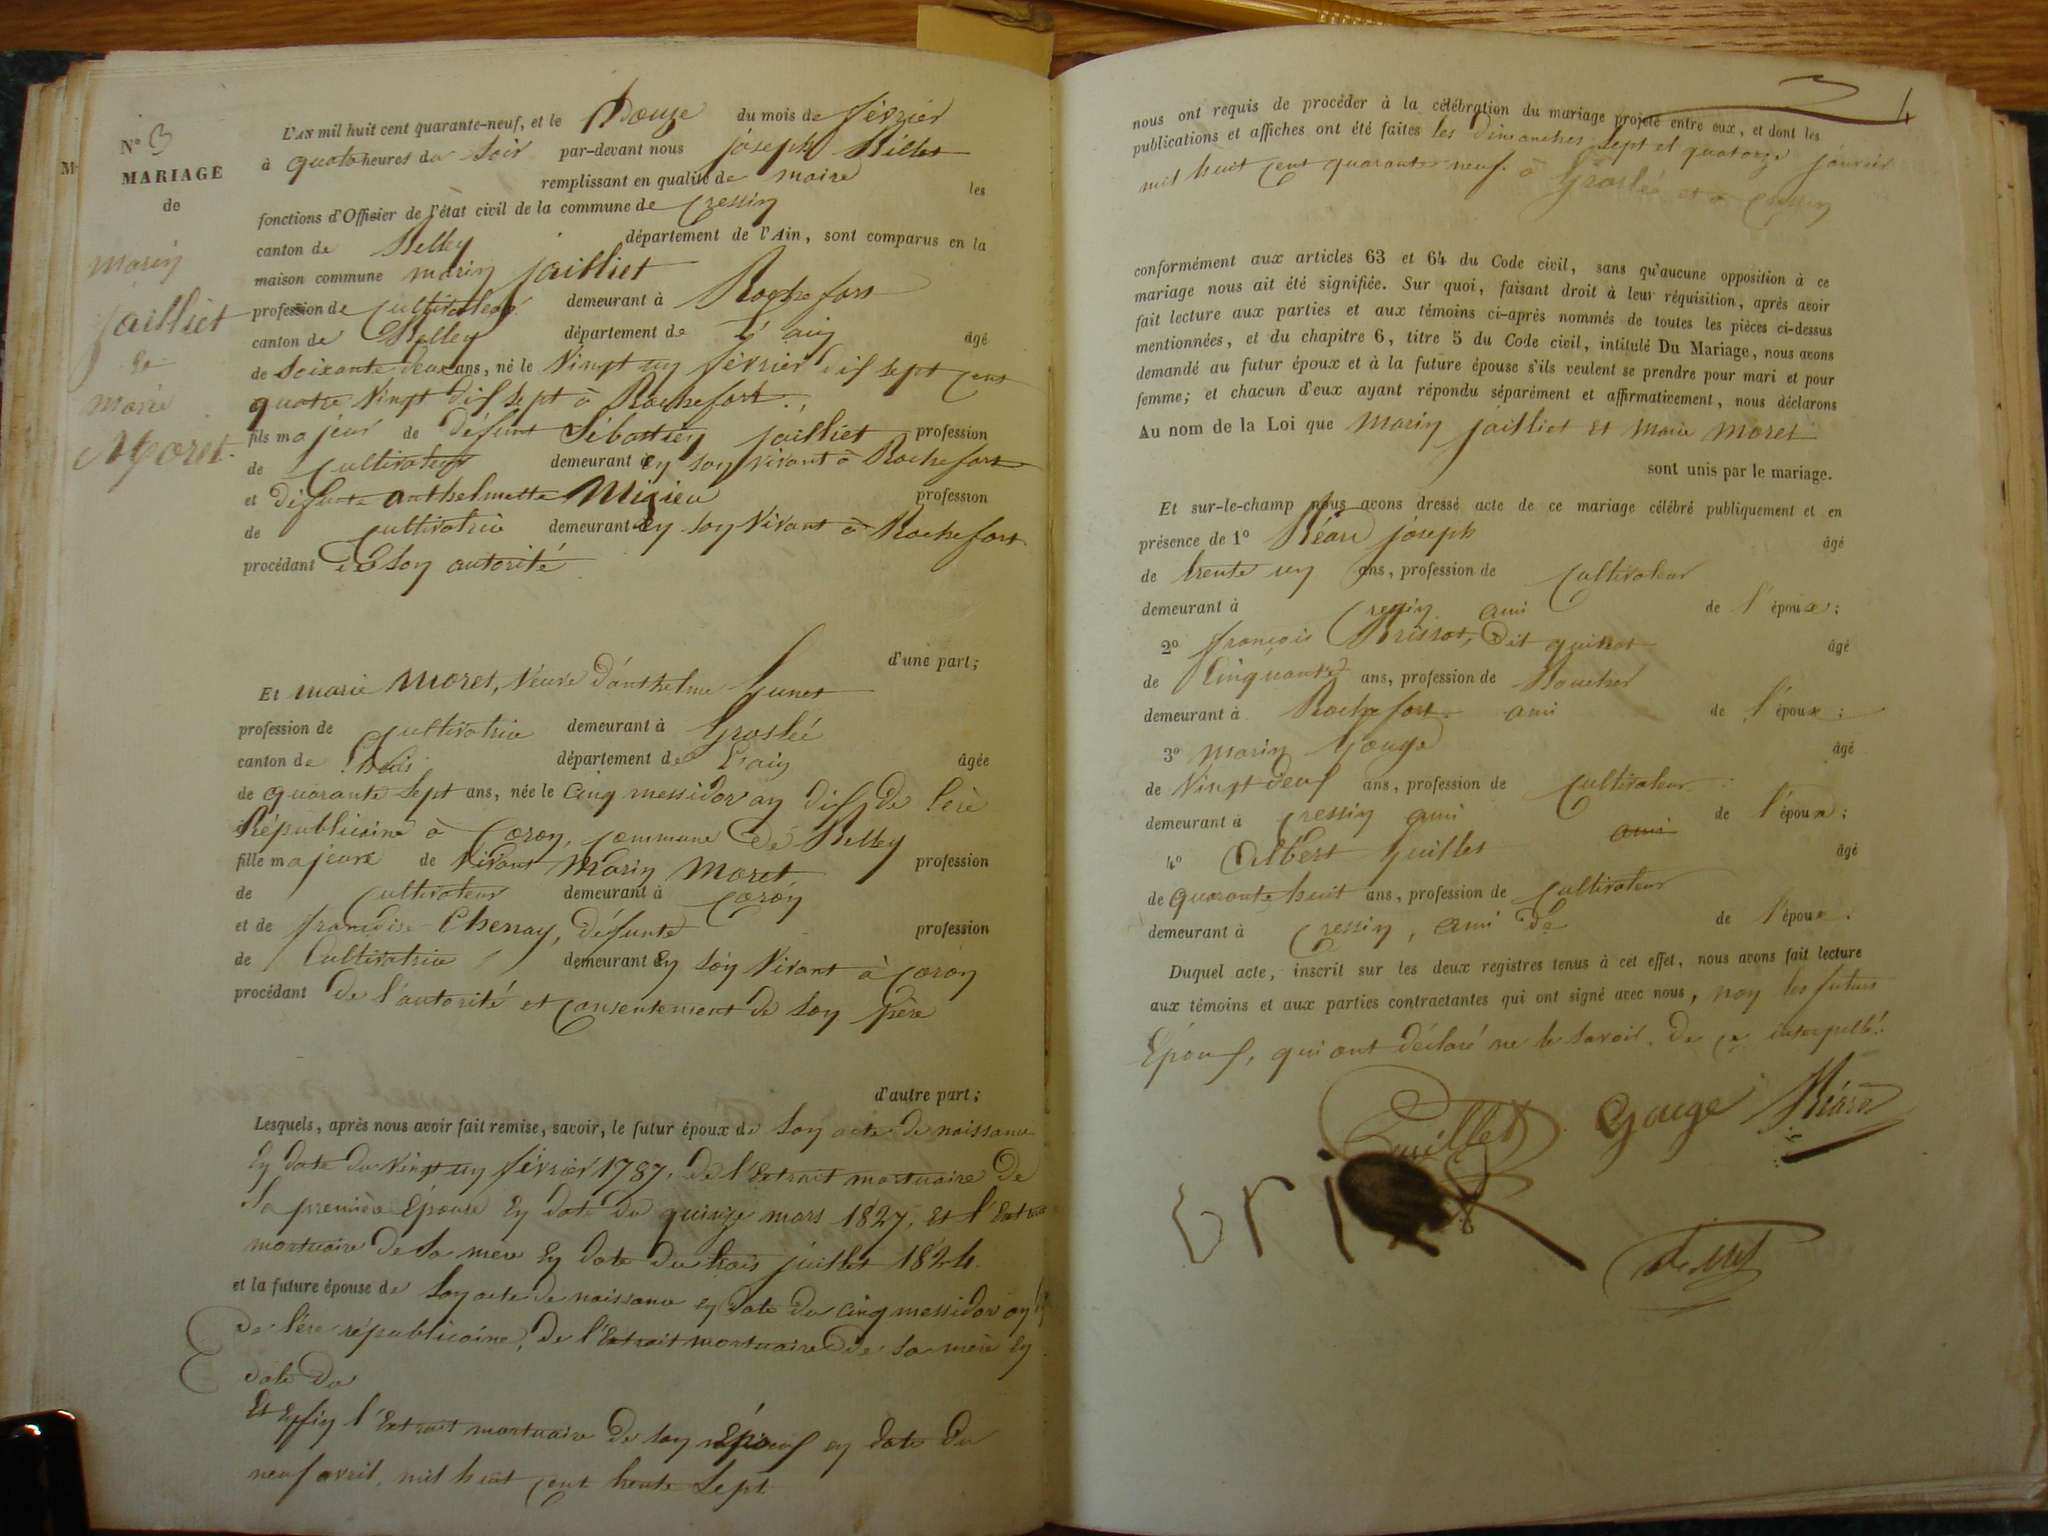 N° 3
MARIAGE
de
marin
jailliet
&
marie
Moret.
L'AN mil huit cent quarante-neuf, et le Douze du mois de février
à quatre heures du Soir par-devant nous joseph Billet
remplissant en qualité de maire les
fonctions d'Officier de l'état civil de la commune de Cressin
canton de Belley département de l'Ain, sont comparus en la
maison commune marin jailliet
profession de Cultivateur demeurant à Rochefort
canton de Belley département de L'ain âgé
de Soixante deux ans, né le Vingt un février dix sept cent
quatre Vingt dix sept à Rochefort.
fils majeur de défunt Sébastien jailliet profession
de Cultivateur demeurant en son vivant à Rochefort
et défunte anthelmette Mizieu profession
de Cultivatrice demeurant en son Vivant à Rochefort
procédant de Son autorité
d'une part;
Et marie Moret, Veuve d'anthelme Junet
profession de Cultivatrice demeurant à Groslée
canton de Lhuis département de L'ain âgée
de quarante Sept ans, née le cinq messidor an dix de l'ère
Républicaine à Coron, Commune de Belley
fille majeure de Vivant Marin Moret profession
de Cultivateur demeurant à Coron
et de françoise Chernay, défunte profession
de Cultivatrice demeurant en son Vivant à Coron
procédant de l'autorité et Consentement de Son père
d'autre part;
Lesquels, après nous avoir fait remise, savoir, le futur époux de Son acte de naissance
En date du Vingt un février 1787, de l'Extrait mortuaire de
Sa première Epouse En date du quinze mars 1827, Et l'Extrait
mortuaire de Sa mère En date du trois juillet 1824.
et la future épouse de Son acte de naissance en date du cinq messidor an dix
de l'ère républicaine, de l'Extrait mortuaire de sa mère En
date du
Et Enfin l'Extrait mortuaire de Son Epoux en date du
neuf avril, mil huit Cent trente Sept
4
nous ont requis de procéder à la célébration du mariage projeté entre eux, et dont les
publications et affiches ont été faites les dimanches Sept et quatorze janvier
mil huit Cent quarante neuf. à Groslée et à Cressin
conformément aux articles 63 et 64 du Code civil, sans qu'aucune opposition à ce
mariage nous ait été signifiée. Sur quoi, faisant droit à leur réquisition, après avoir
fait lecture aux parties et aux témoins ci-après nommés de toutes les pièces ci-dessus
mentionnées, et du chapitre 6, titre 5 du Code civil, intitulé Du Mariage, nous avons
demandé au futur époux et à la future épouse s'ils veulent se prendre pour mari et pour
femme; et chacun d'eux ayant répondu séparément et affirmativement, nous déclarons
Au nom de la Loi que Marin jailliet et Marie Moret
sont unis par le mariage.
Et sur-le-champ nous avons dressé acte de ce mariage célébré publiquement et en
présence de 1° Béard joseph âgé
de trente un ans, profession de Cultivateur
demeurant à Cressin ami de l'époux;
2° françois Brissot, dit guinot âgé
de Cinquante ans, profession de Boucher
demeurant à Rochefort. ami de l'époux;
3° Marin Gouge âgé
de Vingt deux ans, profession de Cultivateur
demeurant à Cressin ami de l'époux;
4° Albert Guillet ami âgé
de quarante huit ans, profession de Cultivateur
demeurant à Cressin, ami de de l'époux.
Duquel acte, inscrit sur les deux registres tenus à cet effet, nous avons fait lecture
aux témoins et aux parties contractantes qui ont signé avec nous, non les futurs
Epoux, qui ont déclaré ne le Savoir. de ce interpellé.
Guillet Gouge Béard
Billet